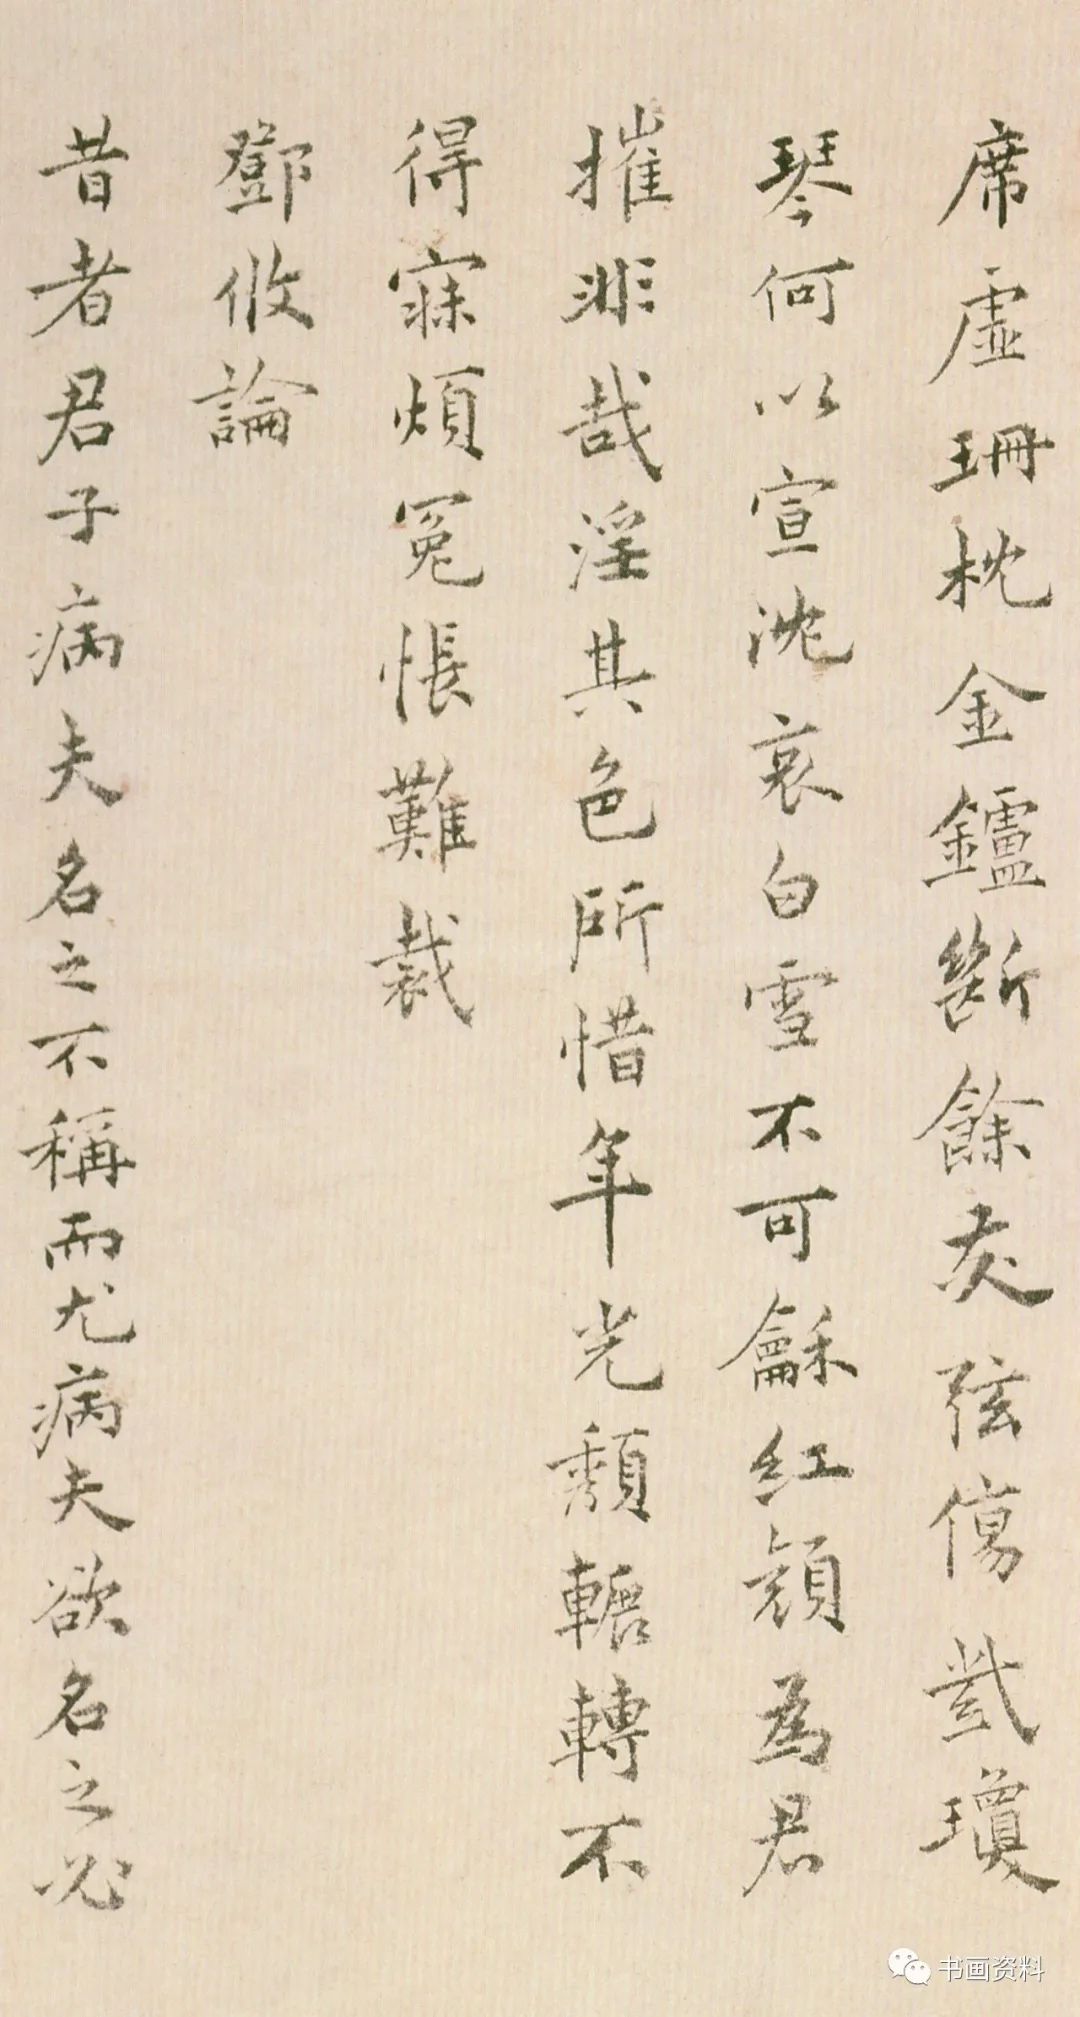 席虛珊枕金鑪斷餘灰弦傷哉瓊
琴何以宣沈哀白雪不可龢紅顏為君
摧非哉淫其色所惜年光頹轆轉不
得寐煩冤悵難裁
鄧攸論
昔者君子病夫名之不稱而尤病夫欲名之必
书画资料